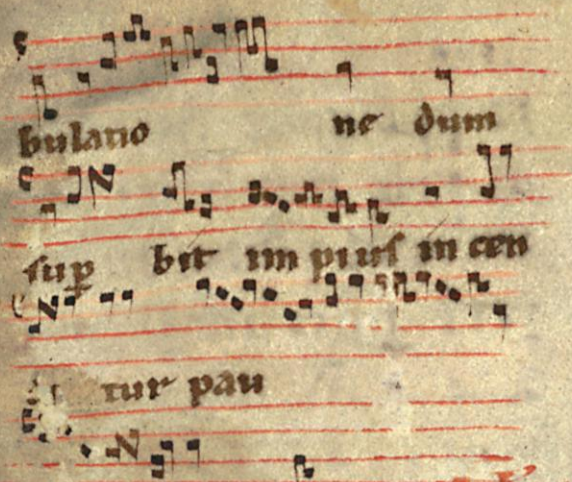 bulatio ne dum
sup̱ bit im pius in cen
tur pau